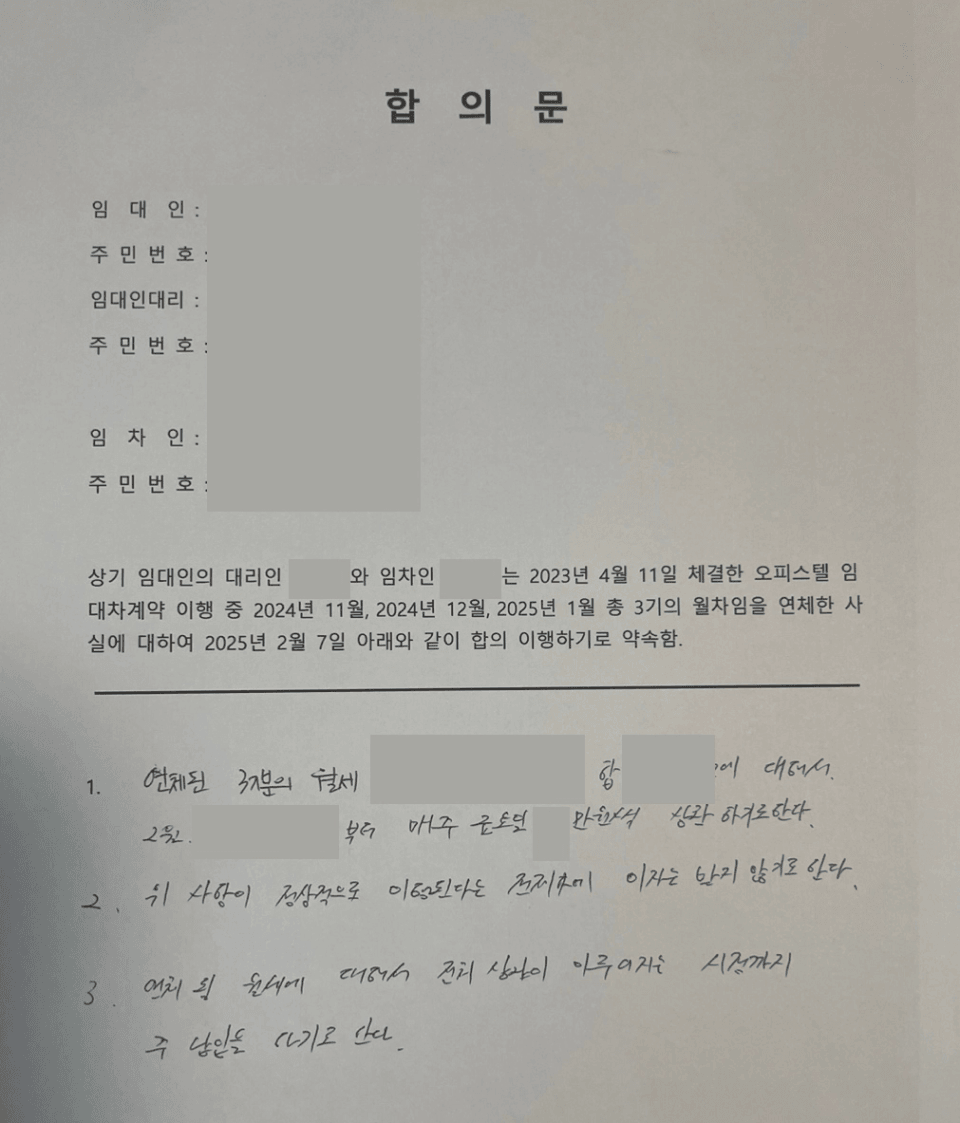 합 의 문
임 대 인 :
주 민 번 호 :
임대인대리 :
주 민 번 호 :
임 차 인 :
주 민 번 호 :
상기 임대인의 대리인 와 임차인 는 2023년 4월 11일 체결한 오피스텔 임
대차계약 이행 중 2024년 11월, 2024년 12월, 2025년 1월 총 3기의 월차임을 연체한 사
실에 대하여 2025년 2월 7일 아래와 같이 합의 이행하기로 약속함.
1. 연체된 월세 합 에 대해서.
2월. 부터 매주 만원씩 상환 하기로한다.
2. 위 사항이 정상적으로 이행된다는 전제하에 이자는 받지 않기로 한다.
3. 연체 된 월세에 대해서 전체 상환이 이루어지는 시점까지
주 납입을 하기로 한다.